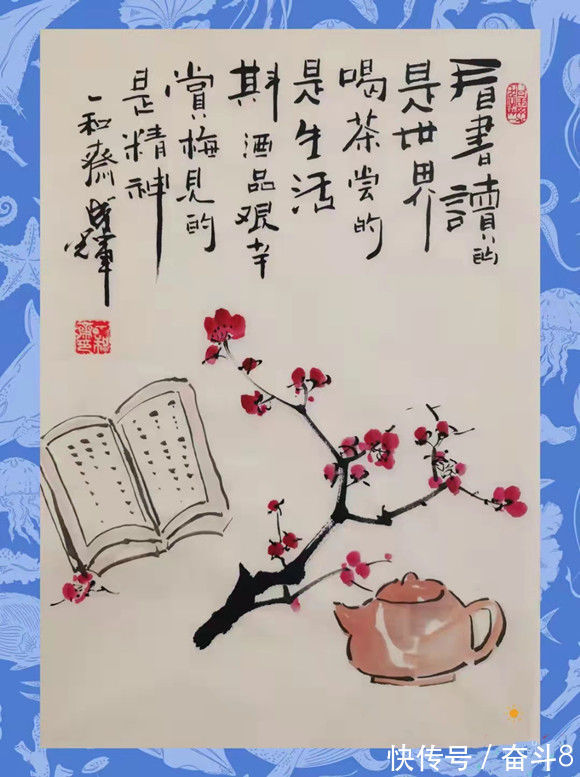 看書讀的
是世界
喝茶尝的
是生活
斟酒品艰辛
賞梅見的
是精神
一和齋
快传号 / 奋斗8